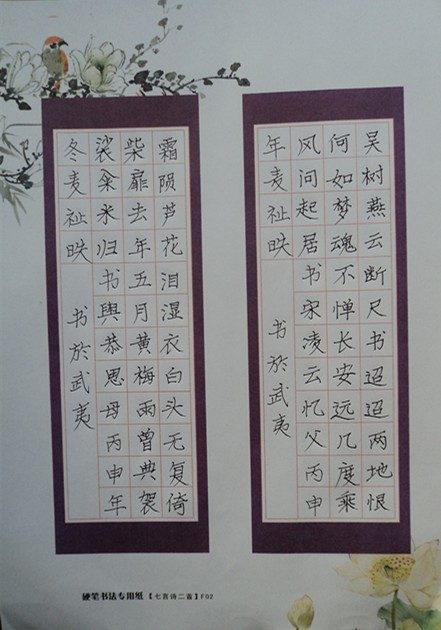 吴树燕云断尺书迢迢两地恨
何如梦魂不惮长安远几度乘
风问起居书宋凌云忆父丙申
年麦祉昳 书於武夷
霜陨芦花泪湿衣白头无复倚
柴扉去年五月黄梅雨曾典袈
裟籴米归书與恭思母丙申年
冬麦祉昳 书於武夷
硬笔书法专用纸【七言诗二首】F02